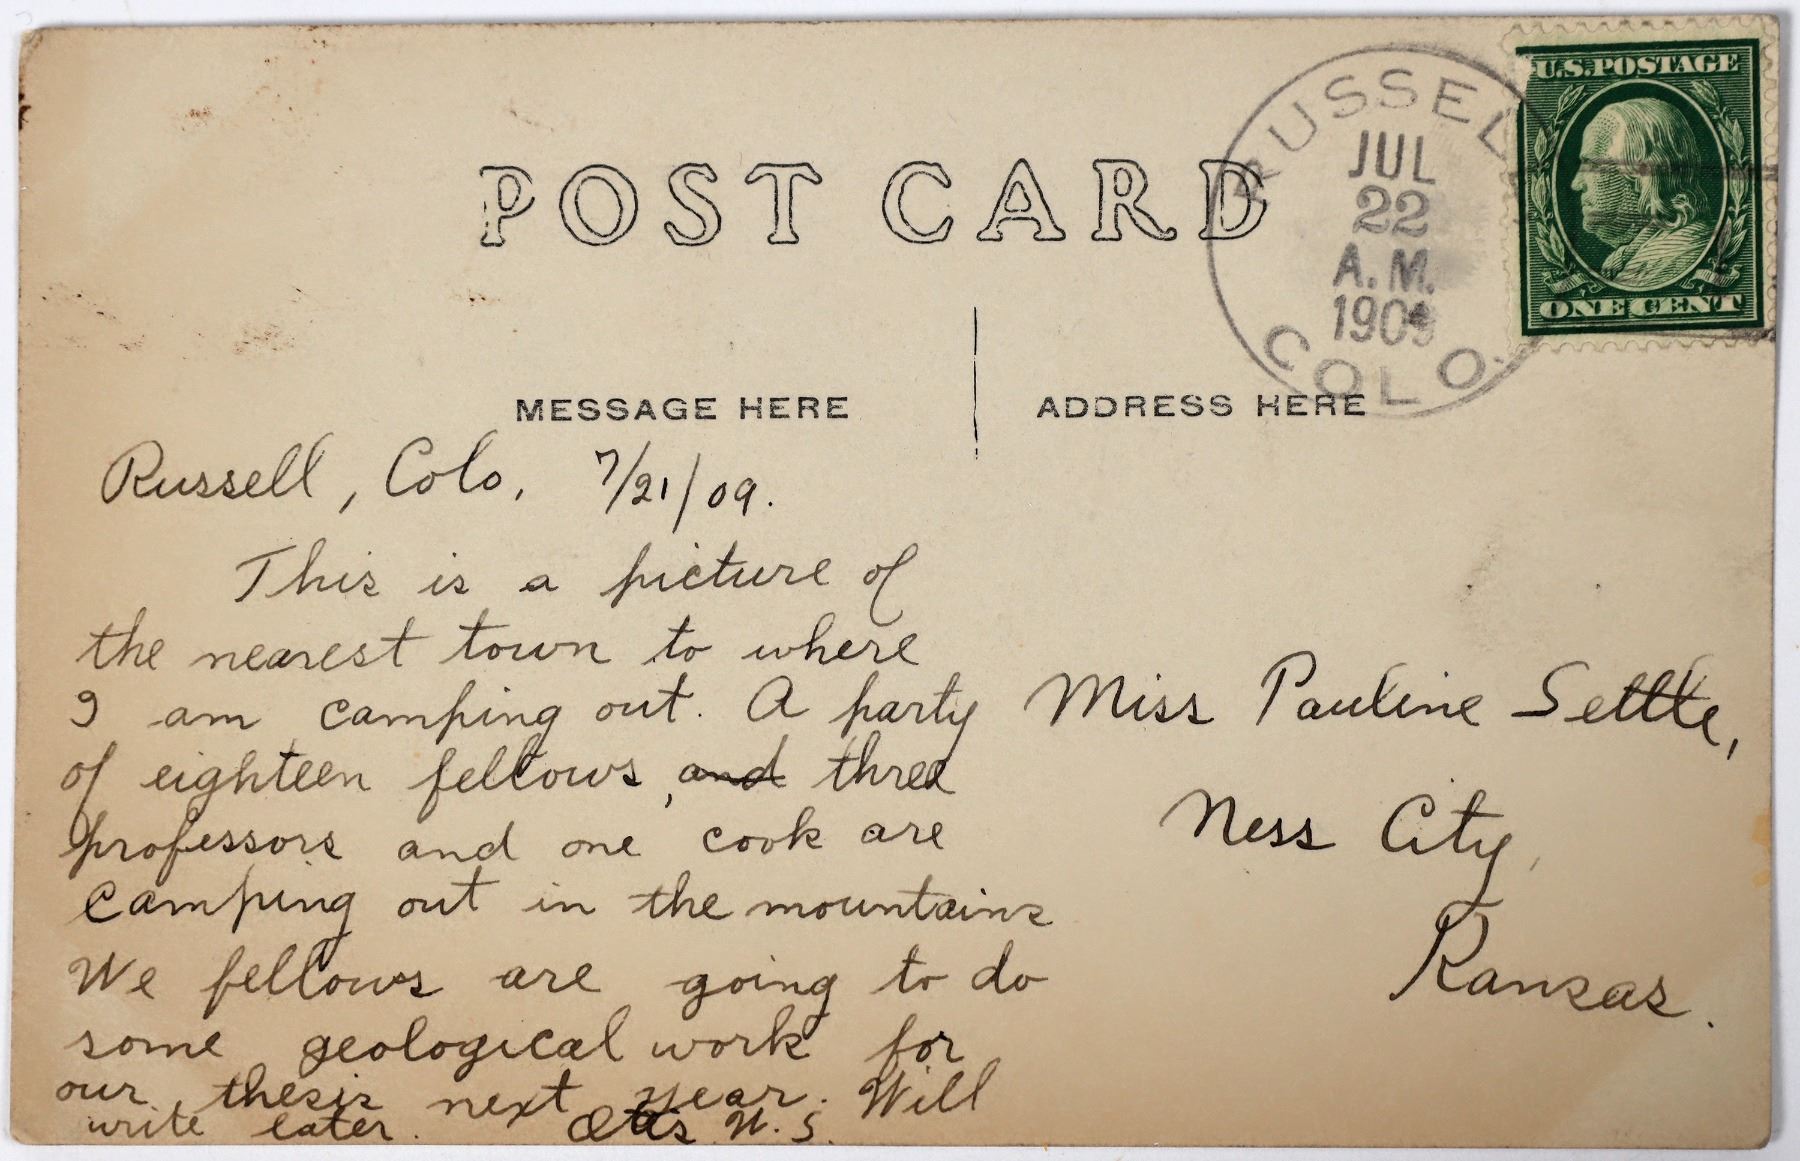 POST CARD
RUSSELL
JUL
22
A.M.
1909
COLO.
U.S. POSTAGE
ONE CENT
MESSAGE HERE
ADDRESS HERE
Russell, Colo, 7/21/09.
This is a picture of
the nearest town to where
I am camping out. A party
of eighteen fellows, and three
professors and one cook are
camping out in the mountains
We fellows are going to do
some geological work for
our thesis next year. Will
write later. Otis W. S.
Miss Pauline Settle,
Ness City,
Kansas.